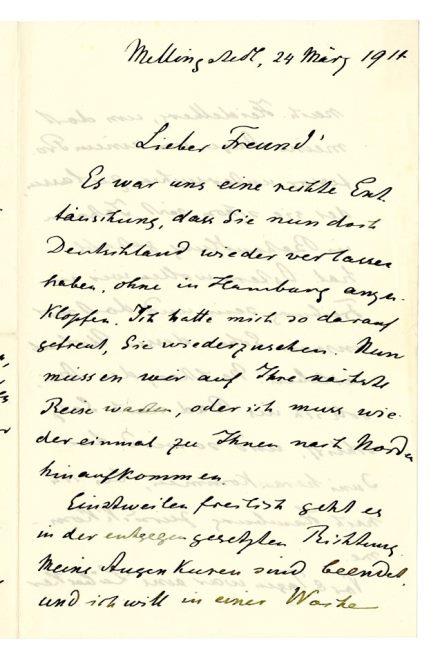 Mellingstedt, 24 März 1911
Lieber Freund!
Es war uns eine rechte Ent-
täuschung, dass Sie nun doch
Deutschland wieder verlassen
haben, ohne in Hamburg anzu-
klopfen. Ich hatte mich so darauf
gefreut, Sie wiederzusehen. Nun
müssen wir auf Ihre nächste
Reise warten, oder ich muss wie-
der einmal zu Ihnen nach Norden
hinaufkommen.
Einstweilen freilich geht es
in der entgegengesetzten Richtung.
Meine Augen Kuren sind beendet,
und ich will in einer Woche